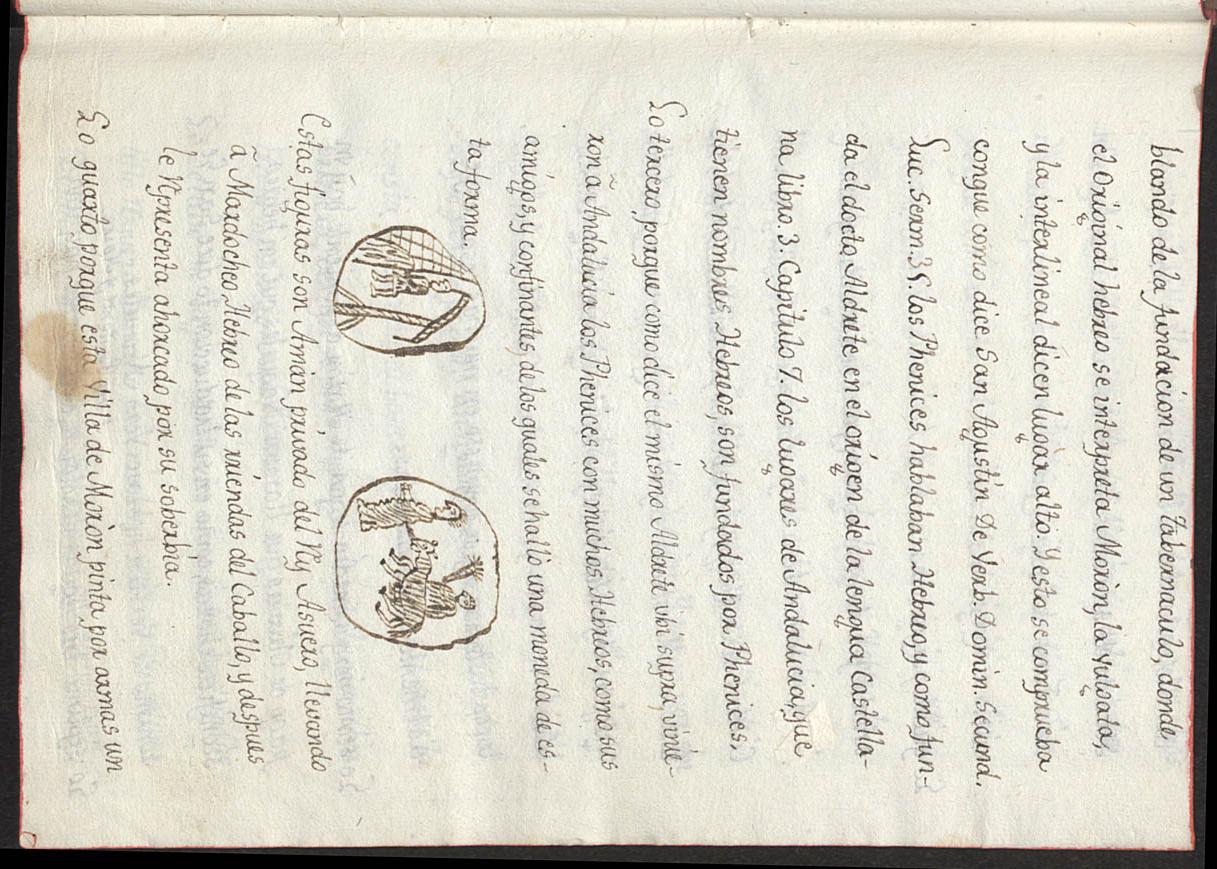 blando de la fundacion de un Tabernaculo, donde
el original hebreo se interpreta Moròn, la Vulgata,
y la interlineal dicen lugar alto. Y esto se comprueba
conque como dice San Agustin De Verb. Domin. Secund.
Luc. Serm. 35. los Phenices hablaban Hebreo, y como fun-
da el docto Aldrete en el origen de la lengua Castella-
na libro. 3. Capitulo 7. los lugares de Andalucia, que
tienen nombres Hebreos, son fundados por Phenices.
Lo tercero porque como dice el mismo Aldrete ubi supra, vinie-
ron a Andalucia los Phenices con muchos Hebreos, como sus
amigos, y confinantes, de los quales se hallò una moneda de es-
ta forma.
Estas figuras son Amàn privado del Rey Asuero, llevando
à Mardocheo Hebreo de las riendas del Caballo, y despues
le representa ahorcado por su soberbia.
Lo quarto porque esta Villa de Moròn pinta por armas un